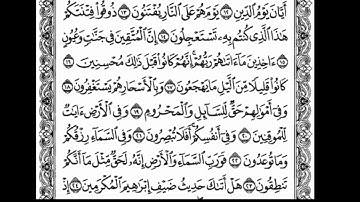 أَيَّانَ يَوْمُ ٱلدِّينِ ١٢ يَوْمَ هُمْ عَلَى ٱلنَّارِ يُفْتَنُونَ ١٣ ذُوقُوا۟ فِتْنَتَكُمْ
هَٰذَا ٱلَّذِى كُنتُم بِهِۦ تَسْتَعْجِلُونَ ١٤ إِنَّ ٱلْمُتَّقِينَ فِى جَنَّٰتٍ وَعُيُونٍ
١٥ ءَاخِذِينَ مَآ ءَاتَىٰهُمْ رَبُّهُمْ إِنَّهُمْ كَانُوا۟ قَبْلَ ذَٰلِكَ مُحْسِنِينَ ١٦
كَانُوا۟ قَلِيلًا مِّنَ ٱلَّيْلِ مَا يَهْجَعُونَ ١٧ وَبِٱلْأَسْحَارِ هُمْ يَسْتَغْفِرُونَ ١٨
وَفِىٓ أَمْوَٰلِهِمْ حَقٌّ لِّلسَّآئِلِ وَٱلْمَحْرُومِ ١٩ وَفِى ٱلْأَرْضِ ءَايَٰتٌ
لِّلْمُوقِنِينَ ٢٠ وَفِىٓ أَنفُسِكُمْ أَفَلَا تُبْصِرُونَ ٢١ وَفِى ٱلسَّمَآءِ رِزْقُكُمْ
وَمَا تُوعَدُونَ ٢٢ فَوَرَبِّ ٱلسَّمَآءِ وَٱلْأَرْضِ إِنَّهُۥ لَحَقٌّ مِّثْلَ مَآ أَنَّكُمْ
تَنطِقُونَ ٢٣ هَلْ أَتَىٰكَ حَدِيثُ ضَيْفِ إِبْرَٰهِيمَ ٱلْمُكْرَمِينَ ٢٤ إِذْ